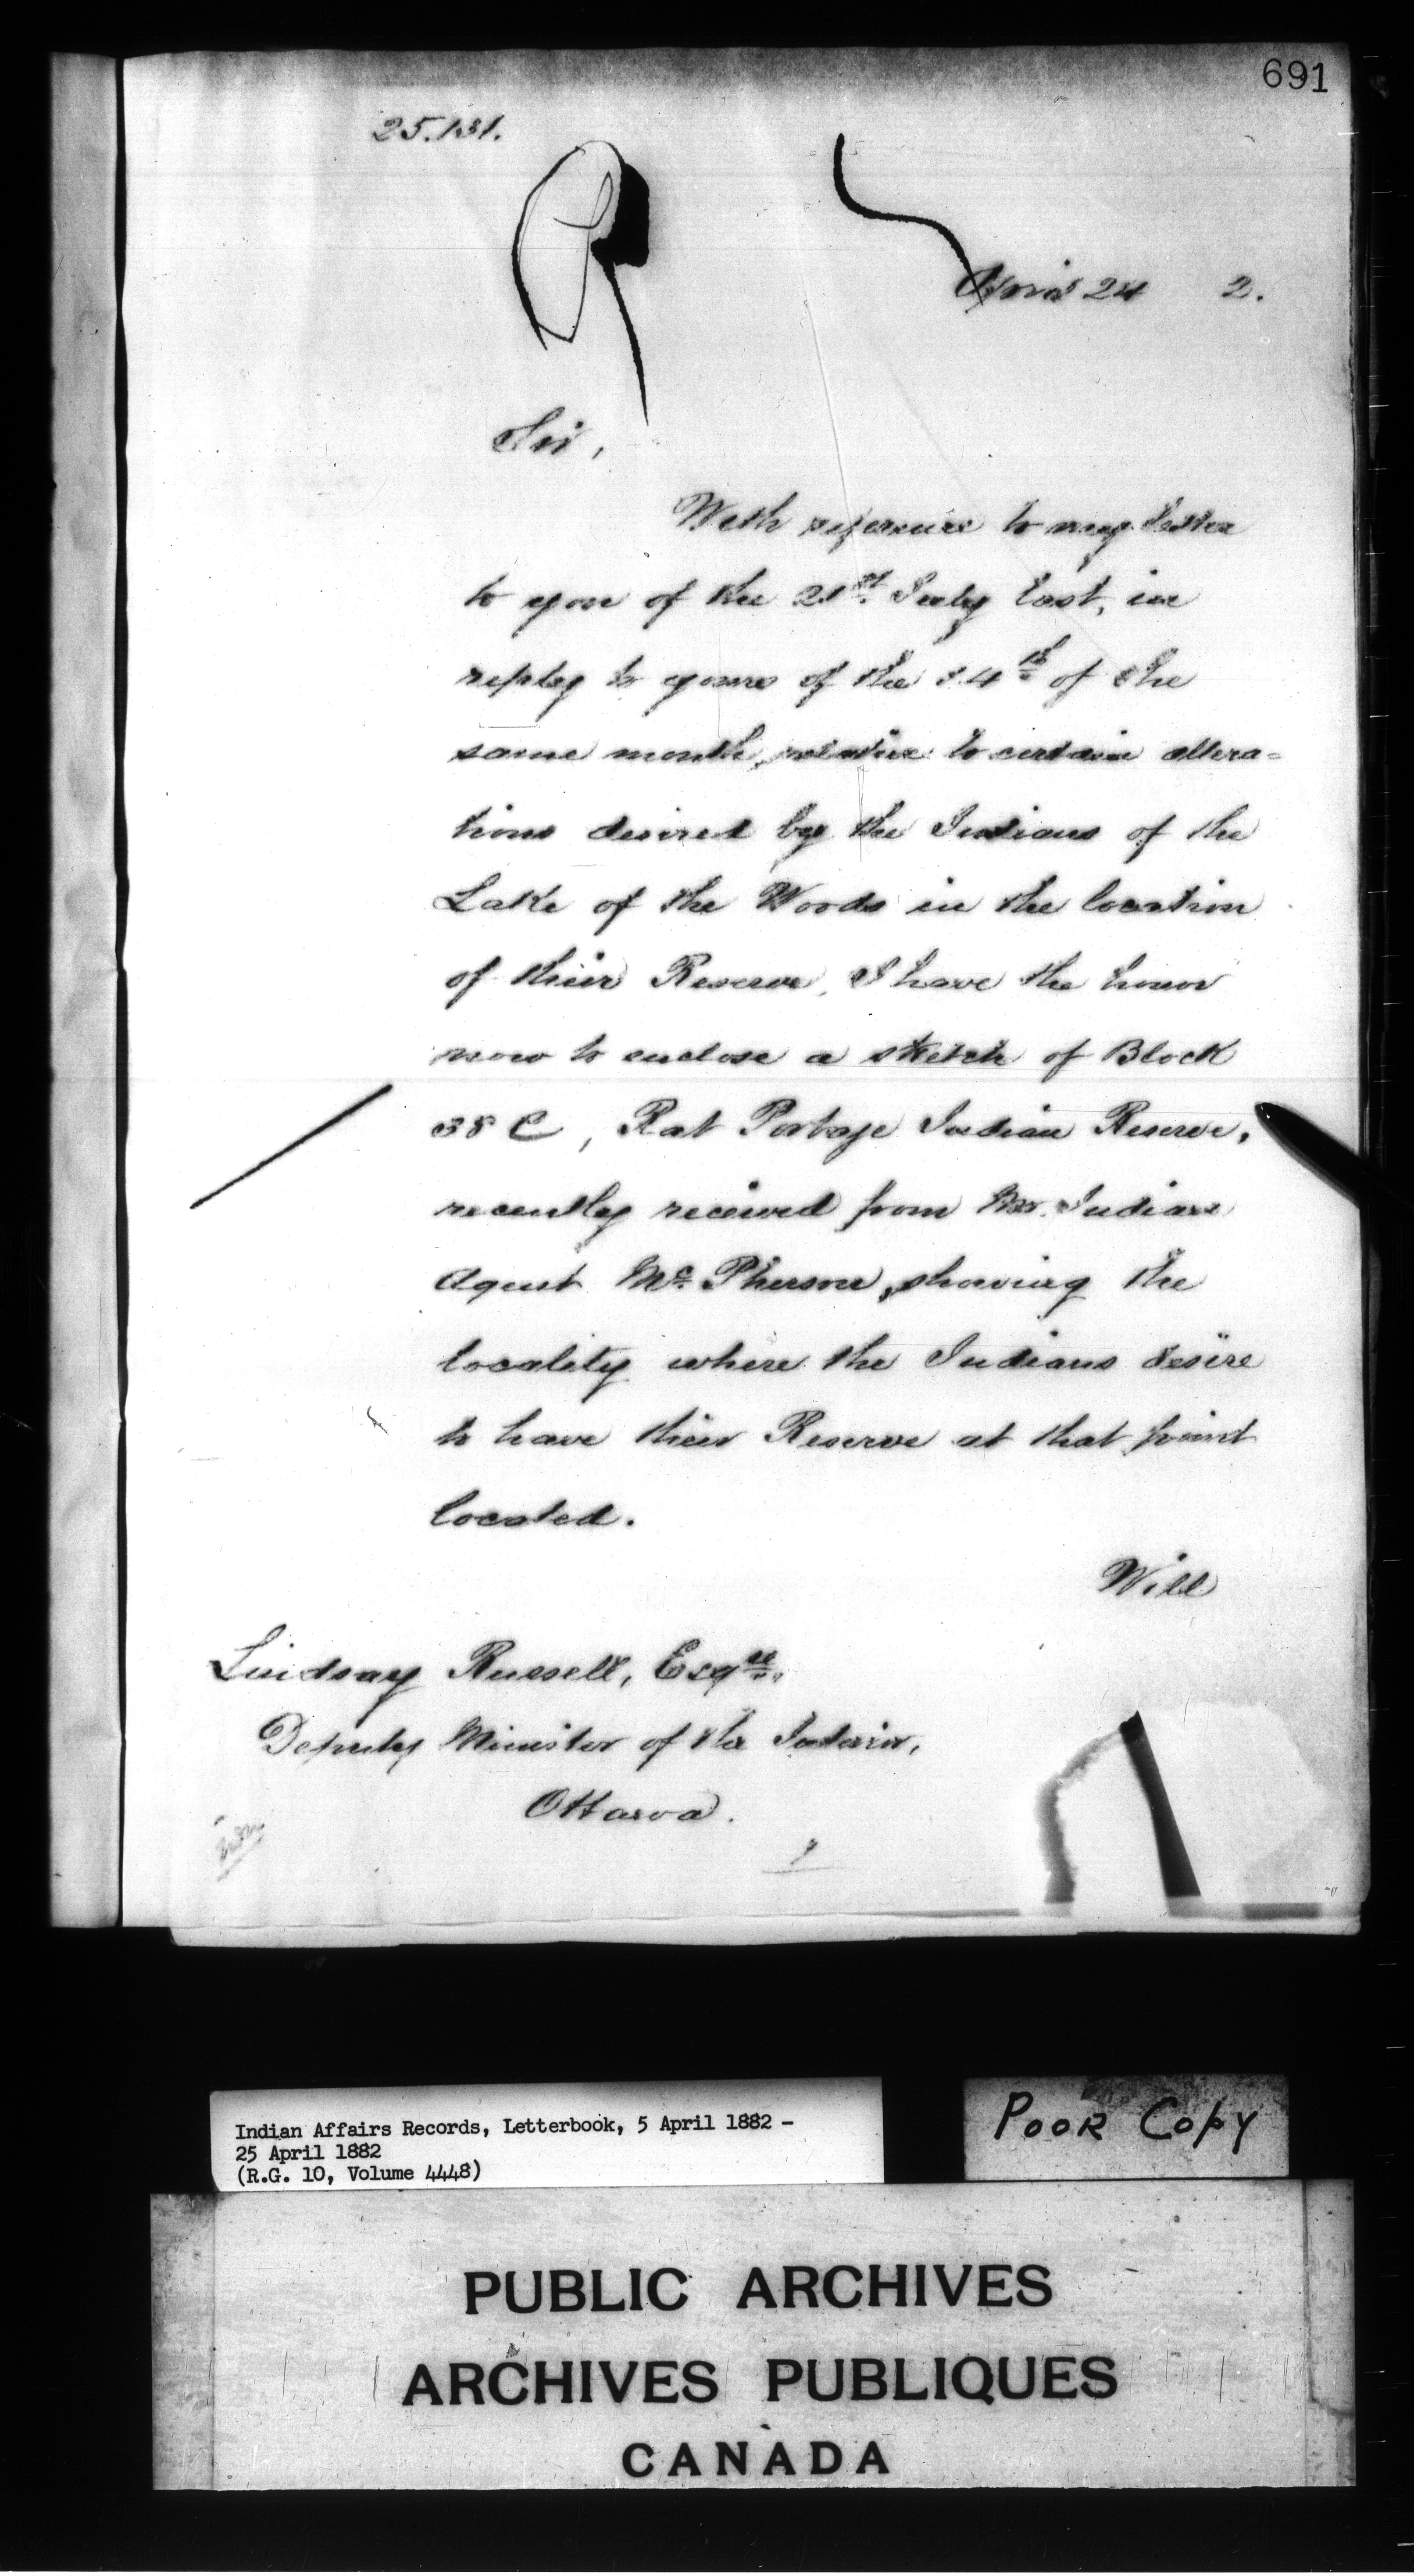 691
25.131.
April 24 2.
Sir,
With reference to my letter
to you of the 21st July last, in
reply to yours of the 14th of the
same month, relative to certain altera=
tions desired by the Indians of the
Lake of the Woods in the location
of their Reserve, I have the honor
now to enclose a sketch of Block
38 C, Rat Portage Indian Reserve,
recently received from Mr. Indian
Agent McPherson, showing the
locality where the Indians desire
to have their Reserve at that point
located.
Will
Lindsay Russell, Esqre.,
Deputy Minister of the Interior,
Ottawa.
Indian Affairs Records, Letterbook, 5 April 1882 -
25 April 1882
(R.G. 10, Volume 4448)
POOR COPY
PUBLIC ARCHIVES
ARCHIVES PUBLIQUES
CANADA